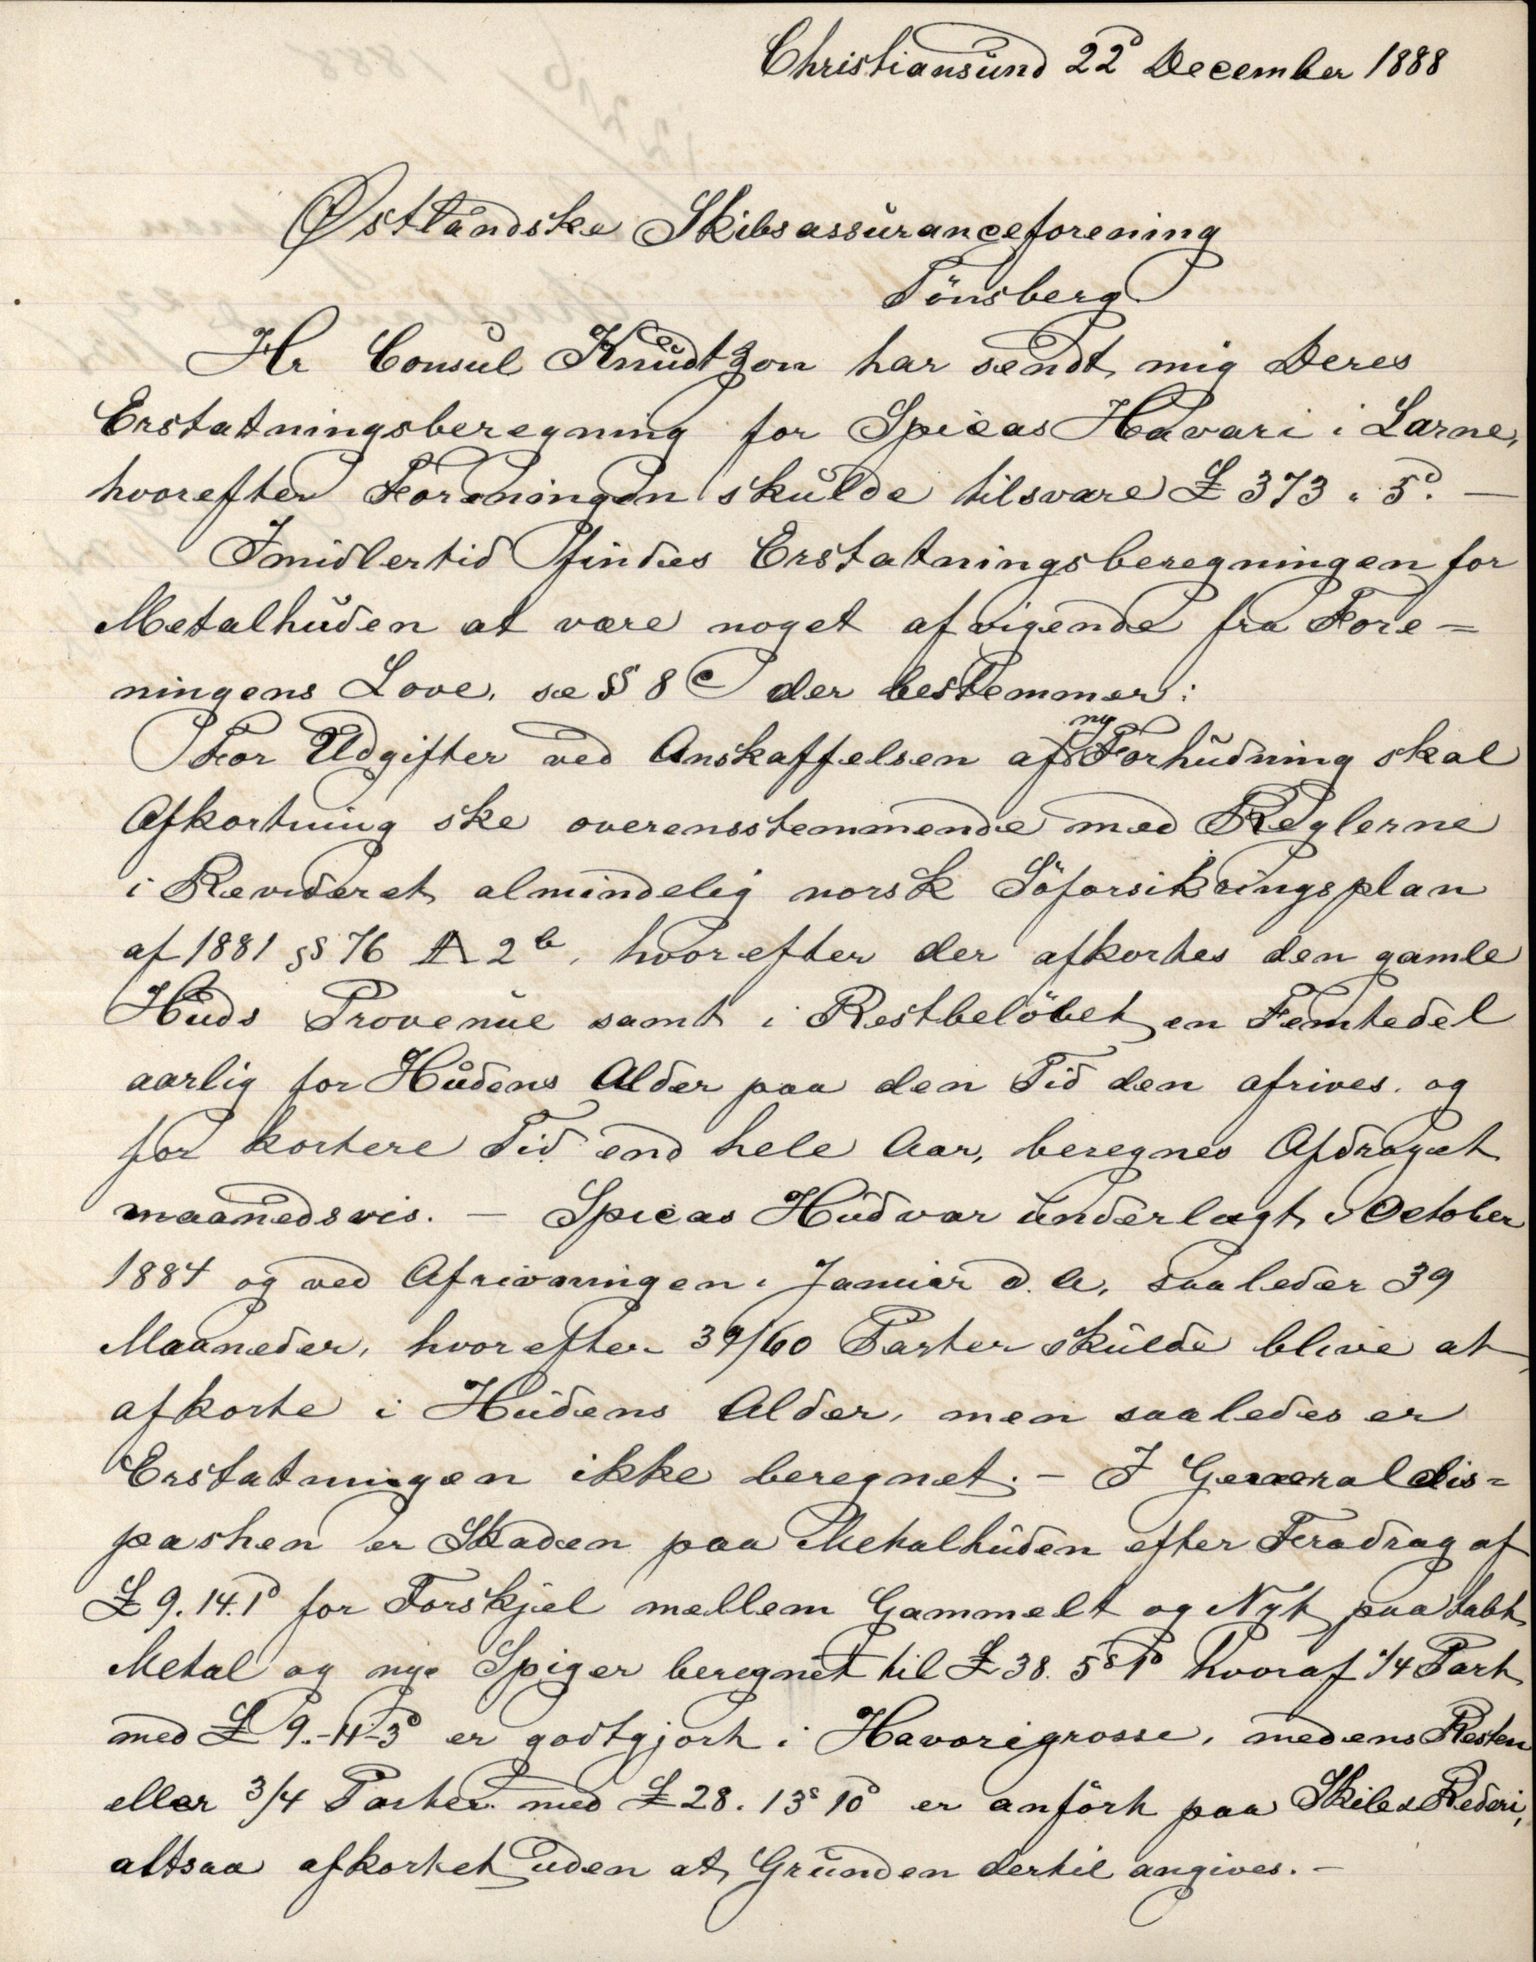 Christiansund 22d December 1888
Østlandske Skibsassuranceforening
Tönsberg
Hr Consul Knudtzon har sendt mig Deres
Erstatningsberegning for Spicas Havari i Larne,
hvorefter Foreningen skulde tilsvare £ 373 „ 5d. —
Imidlertid findes Erstatningsberegningen for
Metalhuden at være noget afvigende fra Fore=
ningens Love, se §§ 8 c der bestemmer:
For Udgifter ved Anskaffelsen af ny Forhudning skal
Afkortning ske overensstemmende med Reglerne
i Revideret almindelig norsk Söforsikringsplan
af 1881 §§ 76 A 2b, hvorefter der afkortes den gamle
Huds Provenue samt i Restbelöbet en Femtedel
aarlig for Hudens Alder paa den Tid den afrives, og
for kortere Tid end hele Aar, beregnes Afdraget
maanedsvis. — Spicas Hud var underlagt i October
1884 og ved Afrivningen i Januar d. A, saaledes 39
Maaneder, hvorefter 39/60 Parter skulde blive at
afkorte i Hudens Alder, men saaledes er
Erstatningen ikke beregnet. — I Generaldis=
pashen er Skaden paa Metalhuden efter Fradrag af
£ 9. 14. 1d for Forskjel mellem Gammelt og Nyt paa tabt
Metal og nye Spiger beregnet til £ 38. 5s 1d hvoraf 1/4 Part
med £ 9.-11-3d er godtgjort i Havarigrosse, medens Resten
eller 3/4 Parter med £ 28. 13s 10d er anfört paa Skib & Rederi,
altsaa afkortet uden at Grunden dertil angives. —